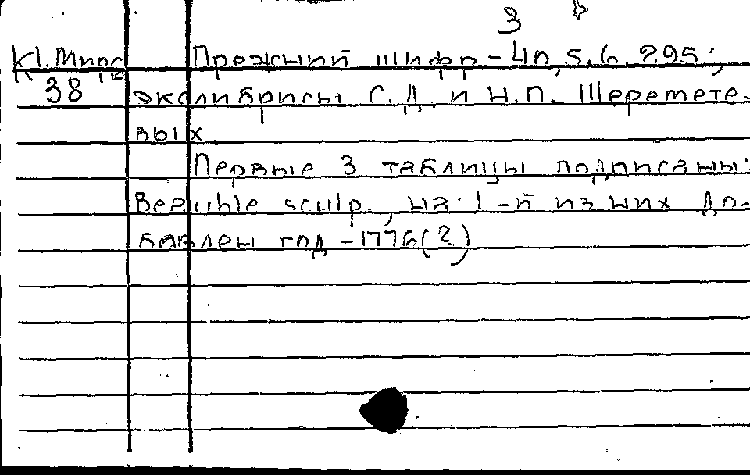 3
КI. Мир
38
Прежний шифр - 4п, 5.6.295;
экслибрисы С.Д. и Н.П. Шеремете-
вых
Первые 3 таблицы подписаны:
sculp., на 1-й из них до-
бавлен год - 1776(?)